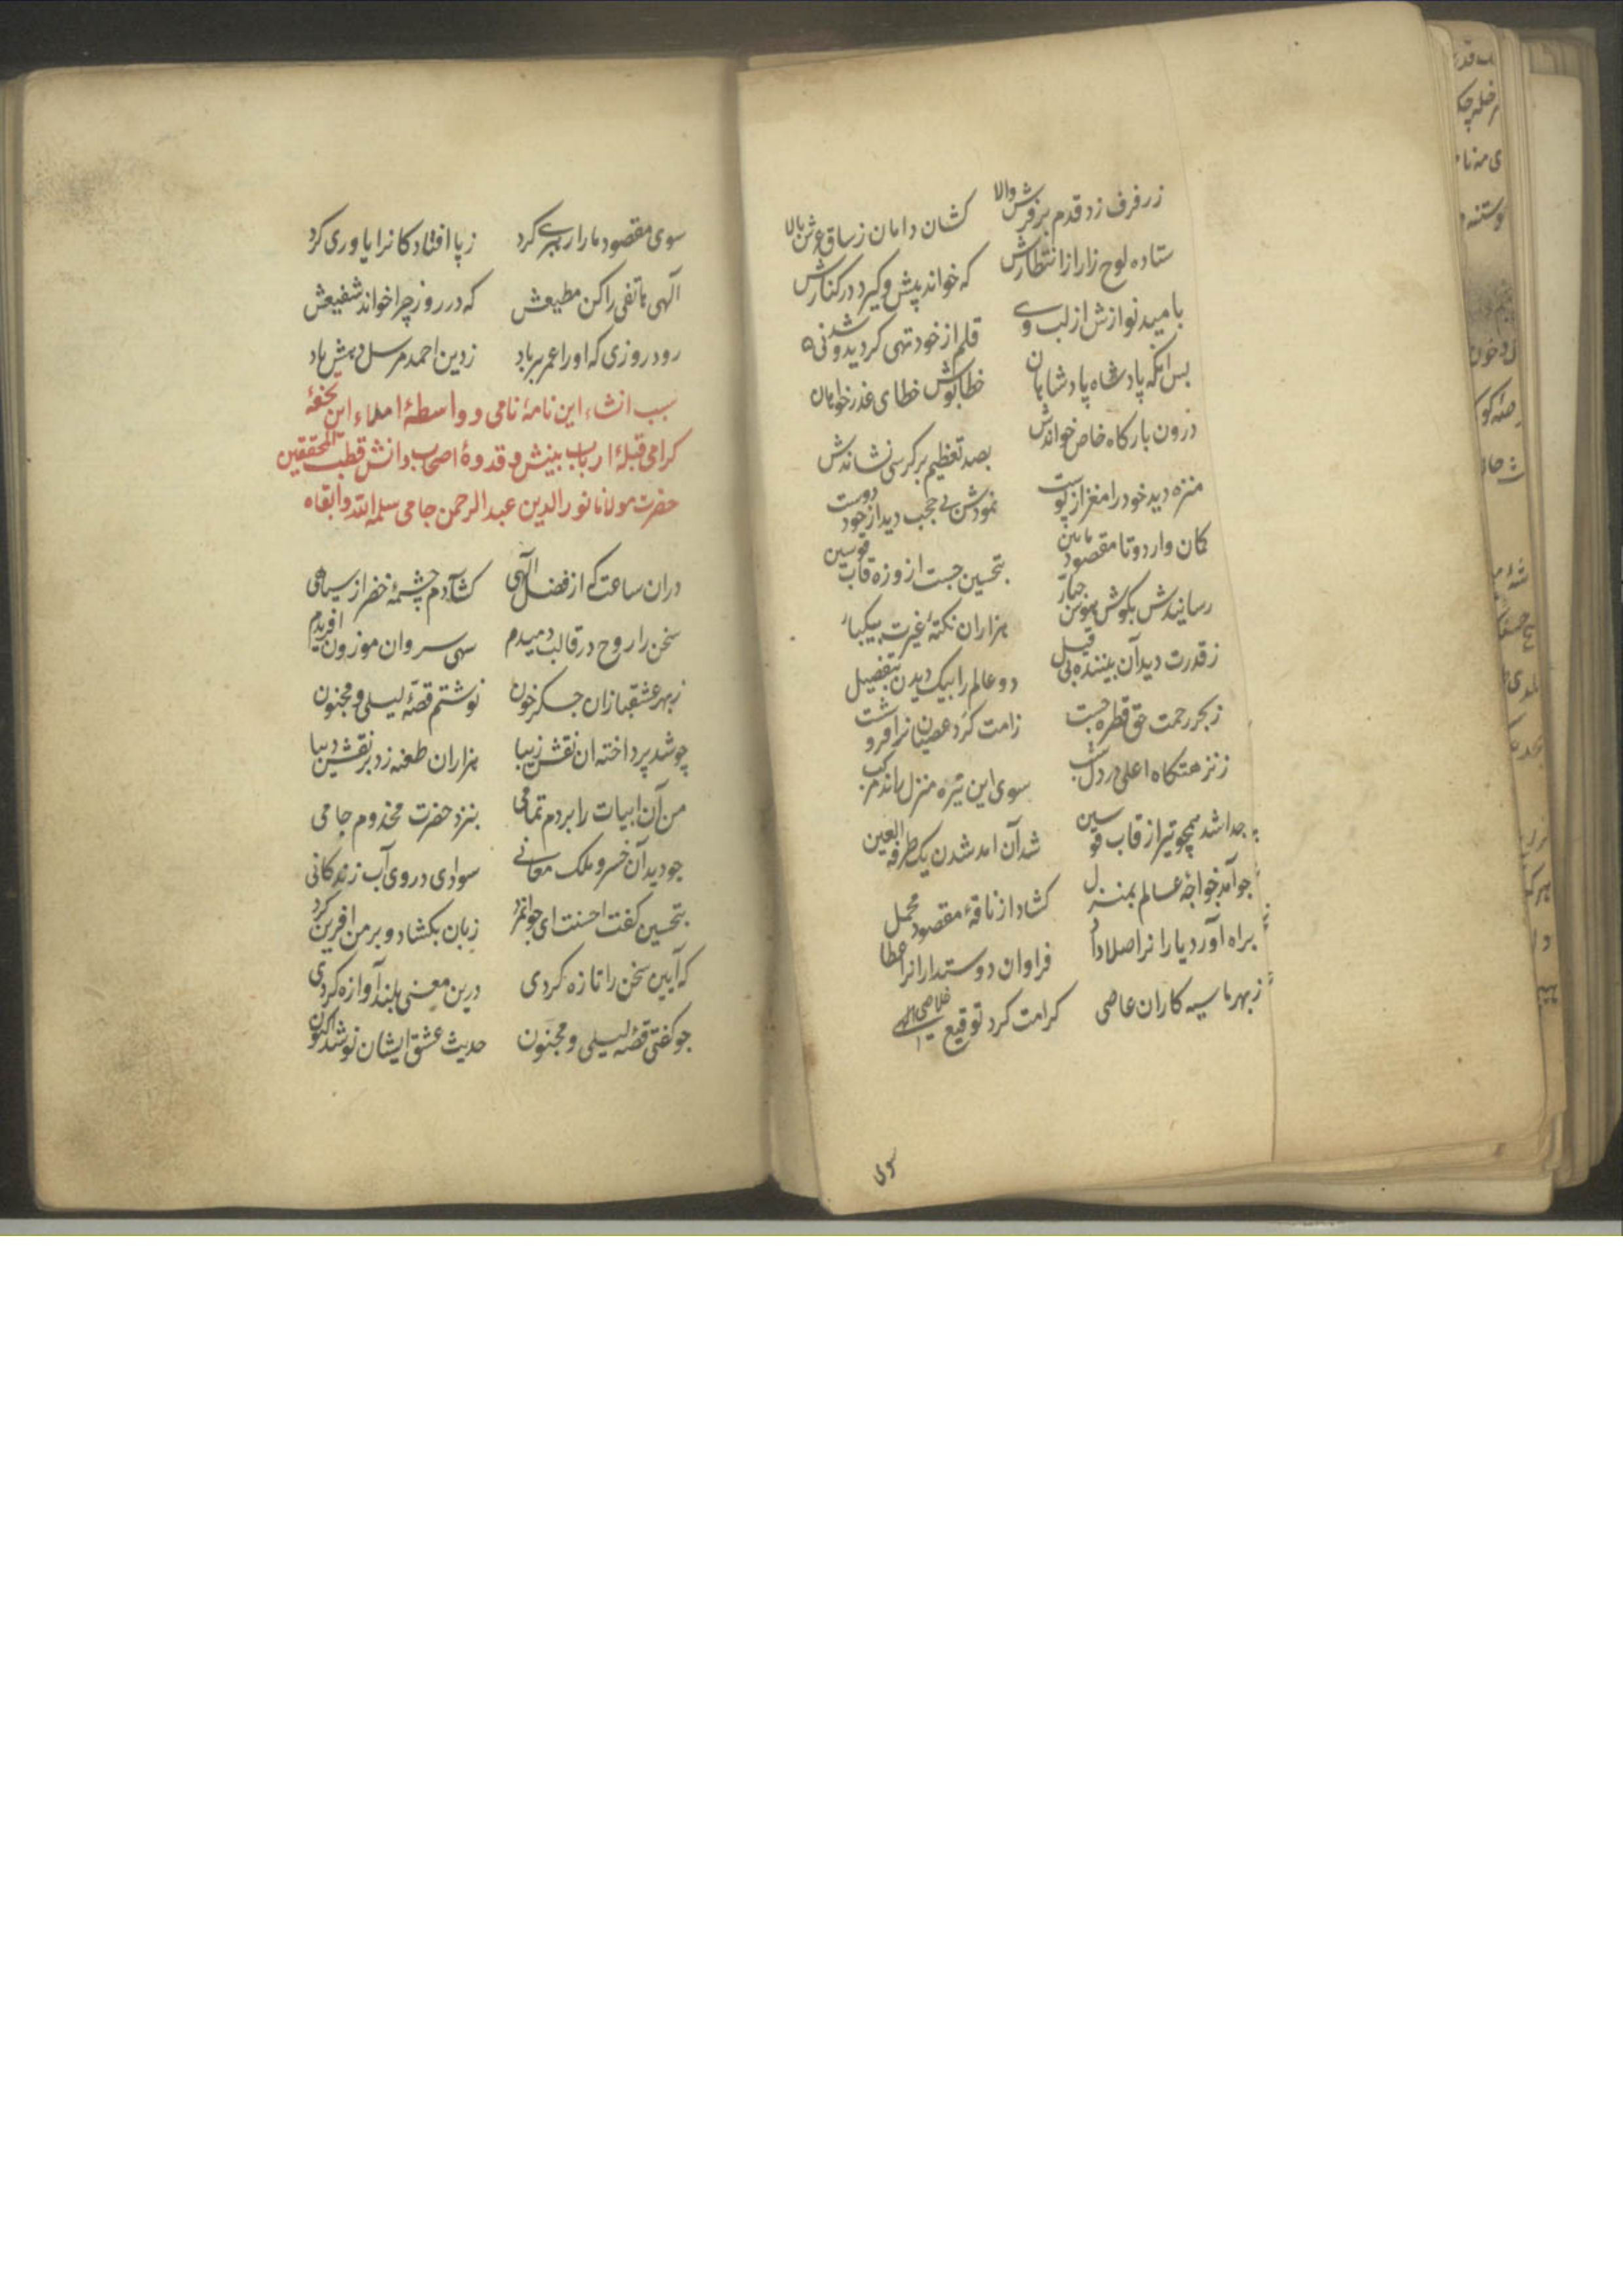 ز رفرف زد قدم بر فرش والا کشان دامان ز ساق عرش بالا
ستاده لوح زار از انتظارش که خواند پیش و گیرد در کنارش
بامید نوازش از لب وی قلم از خود تهی کردید و شد نی
بس انکه پادشاه پادشاهان خطاپوش خطای عذرخواهان
درون بارکاه خاص خواندش بصد تعظیم بر کرسی نشاندش
منزه دید خود را مغز از پوست نمودش بی حجب دیدار خود دوست
کمان وار دو تا مقصود مابین بتحسین جست از وزه قاب قوسین
رسانیدش بکوش هوش جبار هزاران نکتهٔ غیرت بیکبار
ز قدرت دید آن بیننده بی قیل دو عالم را بیک دیدن بتفصیل
ز بحر رحمت حق قطره جست ز امت کرد عصیانرا فرو شست
ز نزهتکاه اعلی در دل شب سوی این تیره منزل راند مرکب
جدا شد همچو تیر از قاب قوسین شد آن امد شدن یک طرفة العین
جو آمد خواجهٔ عالم بمنزل کشاد از ناقهٔ مقصود محمل
براه آورد یارانرا صلا داد فراوان دوستدارانرا عطا
ز بهر ما سیه کاران عاصی کرامت کرد توقیع خلاصی
سوی
سوی مقصود ما را رهبری کرد ز پا افتادکانرا یاوری کرد
آلهی هاتفی را کن مطیعش که در روز جزا خواند شفیعش
رود روزی که او را عمر بر باد ز دین احمد مرسل دهیش یاد
سبب انشاء این نامهٔ نامی و واسطهٔ املاء این تحفهٔ
کرامی قبلهٔ ارباب بینش و قدوهٔ اصحاب دانش قطب المحققین
حضرت مولانا نور الدین عبد الرحمن جامی سلمه الله و ابقاه
دران ساعت که از فضل آلهی کشادم چشمهٔ خضر از سیاهی
سخن را روح در قالب دمیدم سهی سروان موزون افریدم
ز بهر عشقبازان جکر خون نوشتم قصهٔ لیلی و مجنون
چو شد پرداخته ان نقش زیبا هزاران طعنه زد بر نقش دیبا
من آن ابیات را بردم تمامی بنزد حضرت مخدوم جامی
جو دید آن خسرو ملک معانی سوادی در وی آب زندکانی
بتحسین کفت احسنت ای جوانمرد زبان بکشاد و بر من افرین کرد
که آیین سخن را تازه کردی درین معنی بلند آوازه کردی
جو کفتی قصهٔ لیلی و مجنون حدیث عشق ایشان نو شد اکنون